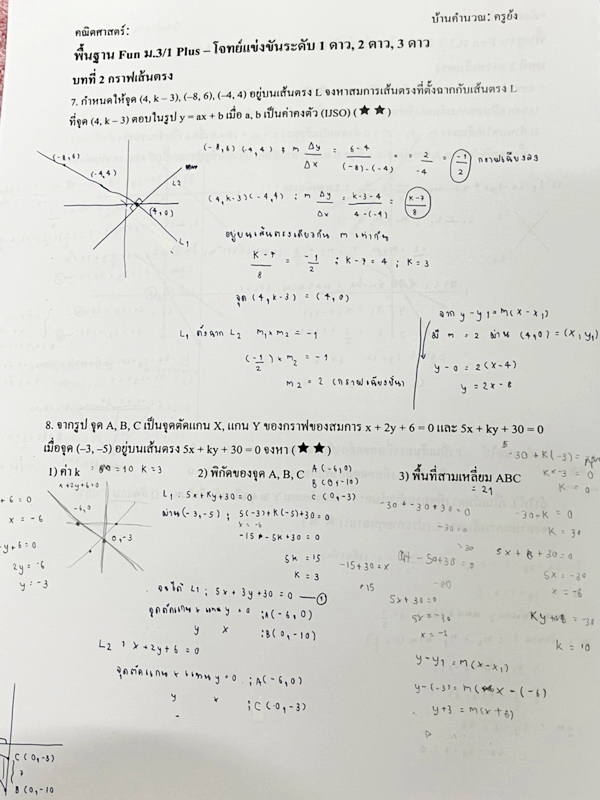 คณิตศาสตร์:
บ้านคำนวณ: ครูยิ้ง
พื้นฐาน Fun ม.3/1 Plus – โจทย์แข่งขันระดับ 1 ดาว, 2 ดาว, 3 ดาว
บทที่ 2 กราฟเส้นตรง
7. กำหนดให้จุด (4, k – 3), (–8, 6), (–4, 4) อยู่บนเส้นตรง L จงหาสมการเส้นตรงที่ตั้งฉากกับเส้นตรง L
ที่จุด (4, k – 3) ตอบในรูป y = ax + b เมื่อ a, b เป็นค่าคงตัว (IJSO) (★★)
(-8,6)
(-4,4)
L2
(4,0)
L1
(-8,6) (-4,4) ; m Δy/Δx = 6-4/(-8)-(-4) = 2/-4 = -1/2
(4,k-3) (-4,4) ; m Δy/Δx = k-3-4/4-(-4) = k-7/8
อยู่บนเส้นตรงเดียวกัน m เท่ากัน
k-7/8 = -1/2 ; k-7 = 4 ; k = 3
จุด (4,k-3) = (4,0)
L1 ตั้งฉาก L2 m1 × m2 = -1
(-1/2) × m2 = -1
m2 = 2 (กราฟเฉียงขึ้น)
จาก y-y1 = m(x-x1)
มี m = 2 ผ่าน (4,0) = (x1,y1)
y-0 = 2(x-4)
y = 2x-8
8. จากรูป จุด A, B, C เป็นจุดตัดแกน X, แกน Y ของกราฟของสมการ x + 2y + 6 = 0 และ 5x + ky + 30 = 0
เมื่อจุด (–3, –5) อยู่บนเส้นตรง 5x + ky + 30 = 0 จงหา (★★)
1) ค่า k
k = 3
2) พิกัดของจุด A, B, C
A(-6,0)
B(0,-10)
C(0,-3)
3) พื้นที่สามเหลี่ยม ABC
= 21
x+2y+6=0
-6,0
0,-3
+6 = 0
x = -6
y+6=0
2y = -6
y = -3
L1 : 5x+ky+30=0
ผ่าน (-3,-5) ; 5(-3)+k(-5)+30=0
-15-5k+30 = 0
5k = 15
k = 3
จะได้ L1 ; 5x+3y+30 = 0 ①
;A(-6,0)
y x ;B(0,-10)
L2 : x+2y+6 = 0
จุดตัดแกน x แทน y=0 ;A(-6,0)
y x ;C(0,-3)
-30+k = 0
k = 30
-15+30 = x
5x+30=0
5x = -30
x = -6
5x = -30
x = -6
k = 10
y-y1 = m(x-x1)
y+3 = m(x+6)
C(0,-3)
7
B(0,-10